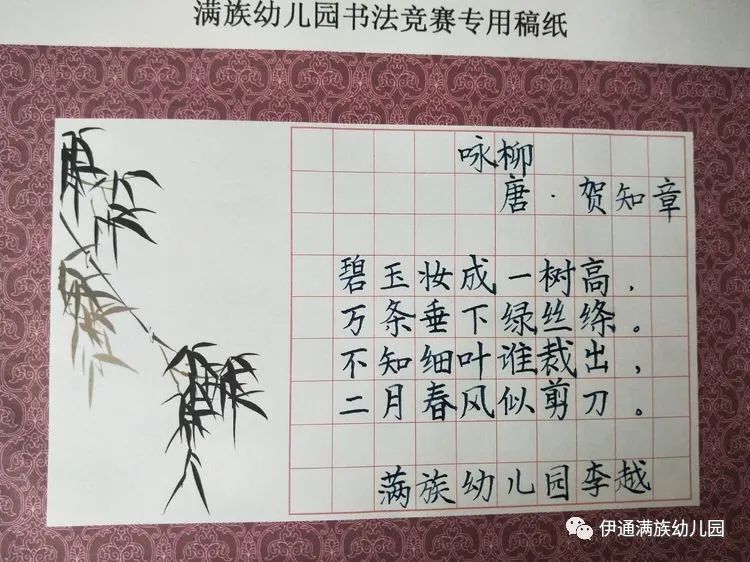 满族幼儿园书法竞赛专用稿纸
咏柳
唐·贺知章
碧玉妆成一树高，
万条垂下绿丝绦。
不知细叶谁裁出，
二月春风似剪刀。
满族幼儿园李越
伊通满族幼儿园